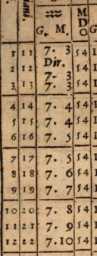 ♒ M
D
G. M. O G
1 11 7. 3 54 1
Dir.
2 12 7. 3 54 1
3 13 7. 3 54 1
4 14 7. 4 54 1
5 15 7. 4 54 1
6 16 7. 4 54 1
7 17 7. 5 54 1
8 18 7. 6 54 1
9 19 7. 7 54 1
10 20 7. 8 54 1
11 21 7. 9 54 1
12 22 7. 10 54 1